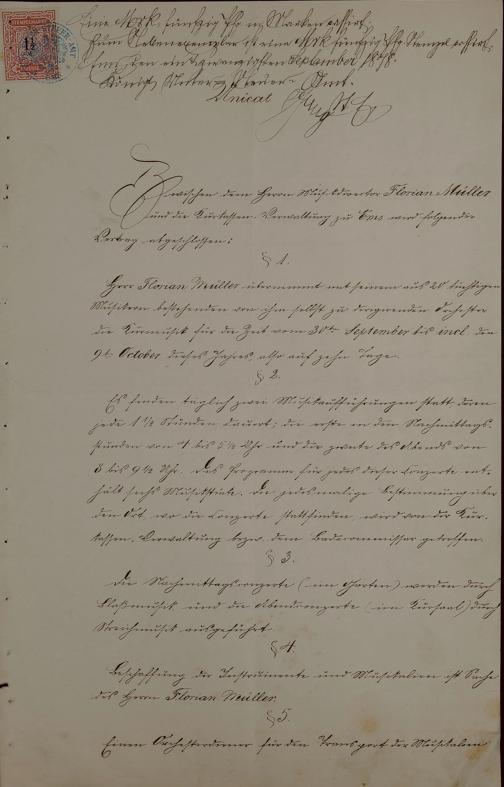 STEMPELMARKE
1½
Eine Mark fünfzig Pfg in Marken cassirt.
Zum Nebenexemplar ist eine Mark fünfzig Pfg Stempel cassirt.
Ems den ein und zwanzigsten September 1878.
Königl. Unter-Steuer-Amt.
Zwischen dem Herrn Musikdirector Florian Müller
und die Kurkassen-Verwaltung zu Ems wird folgender
Vertrag abgeschlossen:
§ 1.
Herr Florian Müller übernimmt mit seinem aus 20 tüchtigen
Musikern bestehenden von ihm selbst zu dirigirenden Orchester
die Kurmusik für die Zeit vom 30ten September bis incl. den
9ten October dieses Jahres also auf zehn Tage.
§ 2.
Es finden täglich zwei Musikaufführungen statt, deren
jede 1½ Stunden dauert; die erste in den Nachmittags-
stunden von 4 bis 5½ Uhr und die zweite des Abends von
8 bis 9½ Uhr. Das Programm für jedes dieser Conzerte ent-
hält sechs Musikstücke. Die jedesmalige Bestimmung über
den Ort, wo die Conzerte stattfinden, wird von der Kur-
kassen-Verwaltung bezw. dem Badecommissar getroffen.
§ 3.
Die Nachmittagsconzerte (im Garten) werden durch
Blasmusik und die Abendconzerte (im Kursaal) durch
Streichmusik ausgeführt.
§ 4.
Beschaffung der Instrumente und Musikalien ist Sache
des Herrn Florian Müller.
§ 5.
Einen Orchesterdiener für den Transport der Musikalien